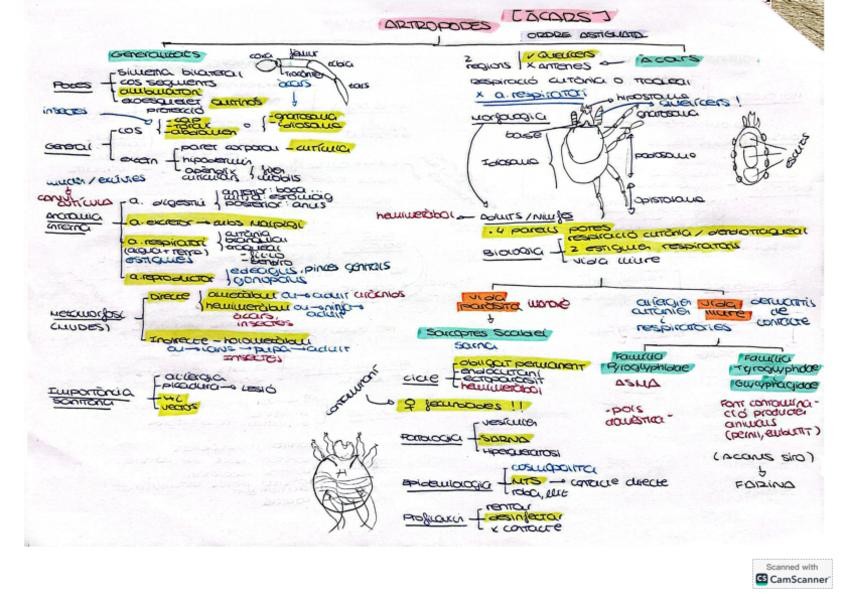 ARTROPODES [ÀCARS]
ORDRE ASTIGMATA
Generalitats
coxa
femur
tibia
trocànter
tars
àcars
Potes
simetria bilateral
cos segments
exoesquelet quitinós
protecció
insectes
- cap
- tòrax
- abdomen
o
- gnatosoma
- idiosoma
General
cos
extern
paret corporal - cutícula
hipodermis
apèndix
cuticulars
mòbils
mudes / exúvies
canvi cutícula
Anatomia interna
a. digestiu
anterior: boca ...
mitjà: estómag
posterior: anus
a. excretor → tubs Malpigi
a. respiratori
(aigua + terra)
estigmes
cutània
branquial
traqueal
a. reproductor
edeagus, pinces genitals
gonopòrus
Metamorfosi
(MUDES)
Directe
ametàbol: ou → adult
hemimetàbol: ou → nimfa → adult
àcars, insectes
Indirecte - holometàbol
ou → larva → pupa → adult
insectes
Importància sanitària
al·lèrgia
picadura → lesió
vectors
2 regions
✓ Quelícers
x Antenes
Àcars
respiració cutània o traqueal
x a. respiratori
hipostoma
quelícers!
gnatosoma
Morfologia
base
Idiosoma
podosoma
opistosoma
escuts
hemimetàbol
Adults / Nimfes
· 4 parells potes
Biologia
respiració cutània / dendotraqueal
2 estigmes respiratoris
vida lliure
vida paràsita
Sarcoptes Scabiei
sarna
Cicle
obligat permanent
endocutani
ectoparàsit
hemimetàbol
contaminant
♀ fecundades !!
Patologia
vesícules
SARNA
hiperqueratosi
Epidemiologia
cosmopolita
MTS → contacte directe
roba, llit
Profilaxis
rentar
desinfectar
x contacte
al·lèrgies
cutànies
i
respiratòries
vida lliure
dermatitis de contacte
Família
Pyroglyphidae
ASMA
- pols domèstica -
Família
Tyroglyphidae
Glycyphagidae
Font contamina-
ció productes
animals
(pernil, embutit)
(Acarus siro)
FARINA
Scanned with
CS CamScanner